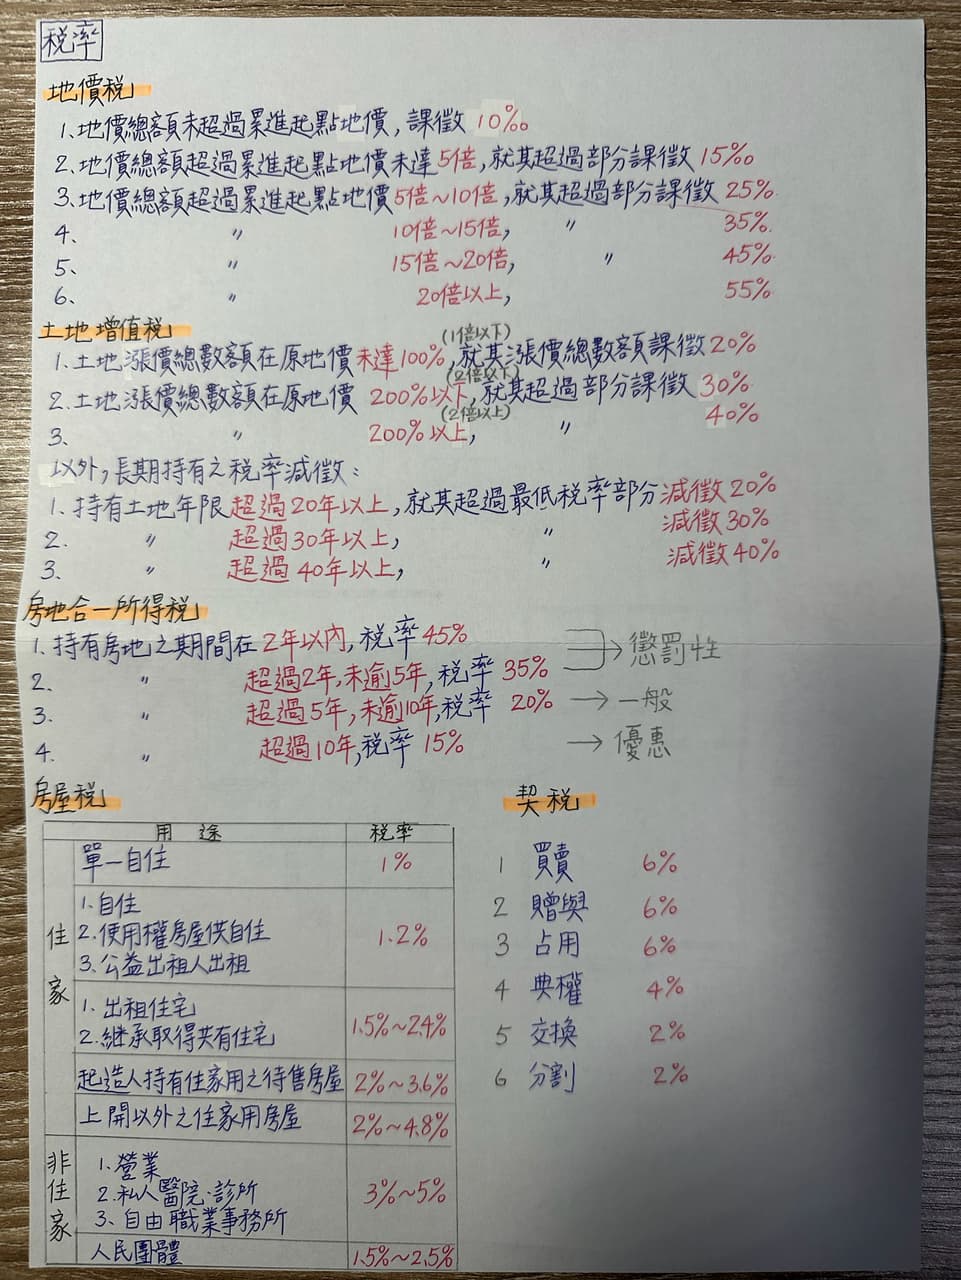 稅率
地價稅
1、地價總額未超過累進起點地價,課徵 10‰
2.地價總額超過累進起點地價未達5倍,就其超過部分課徵 15‰
3、地價總額超過累進起點地價5倍~10倍,就其超過部分課徵 25‰
4、 〃 10倍~15倍, 〃 35‰
5、 〃 15倍~20倍, 〃 45‰
6、 〃 20倍以上, 55‰
土地增值稅
(1倍以下)
1.土地漲價總數額在原地價未達100%,就其漲價總數額課徵20%
(2倍以下)
2.土地漲價總數額在原地價 200%以下,就其超過部分課徵 30%
(2倍以上)
3、 〃 200%以上, 〃 40%
以外,長期持有之稅率減徵:
1.持有土地年限超過20年以上,就其超過最低稅率部分減徵20%
2. 〃 超過30年以上, 〃 減徵30%
3、 〃 超過 40年以上, 〃 減徵40%
房地合一所得稅
1.持有房地之期間在 2年以內,稅率 45%
2. 〃 超過2年,未逾5年,稅率 35% → 懲罰性
3. 〃 超過5年,未逾10年,稅率 20% → 一般
4. 〃 超過10年,稅率 15% → 優惠
房屋稅
用途 稅率
住家
單一自住 1%
1.自住
2.使用權房屋供自住 1.2%
3.公益出租人出租
1.出租住宅
2.繼承取得共有住宅 1.5%~2.4%
起造人持有住家用之待售房屋 2%~3.6%
上開以外之住家用房屋 2%~4.8%
非住家
1.營業
2.私人醫院·診所 3%~5%
3、自由職業事務所
人民團體 1.5%~2.5%
契稅
1 買賣 6%
2 贈與 6%
3 占用 6%
4 典權 4%
5 交換 2%
6 分割 2%